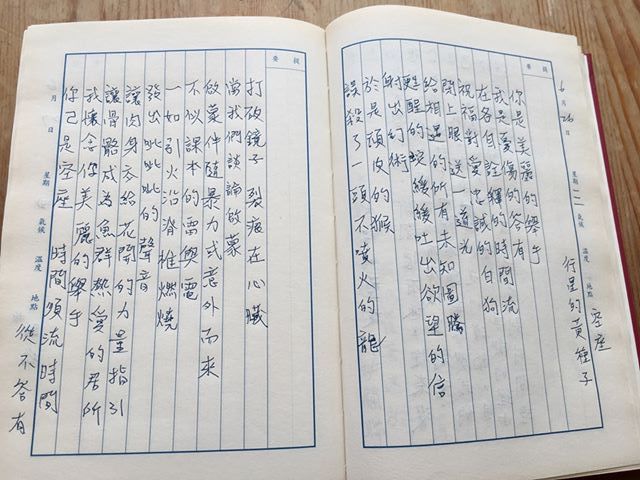 6月26日 星期二 氣候 溫度 地點
空座
行星的黃種子
提要
你是美麗的舉手
我是憂傷的答有
在各自詮釋的時間流
祝福對愛忠誠的白狗
閉上眼送一道光
給相遇的所有未知圖騰
甦醒的蛇緩緩吐出欲望的信
射出幻術
於是頑皮的猴
誤殺了一頭不噴火的龍
提要
打破鏡子 裂痕在心臟
當我們談論啟蒙
啟蒙伴隨暴力式意外而來
不似課本的雷與電
一如引火沿脊椎燃燒
發出呲呲呲的聲音
讓肉身交給花開的力量指引
讓骨骼成為魚群熱愛的居所
我懷念你美麗的舉手
你已是空座 時間順流 時間
從不答有
月 日 星期 氣候 溫度 地點